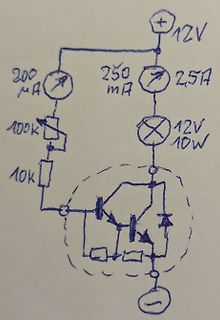 + 12V
200 µA
250 mA
2,5A
100k
12V
10W
10k
−